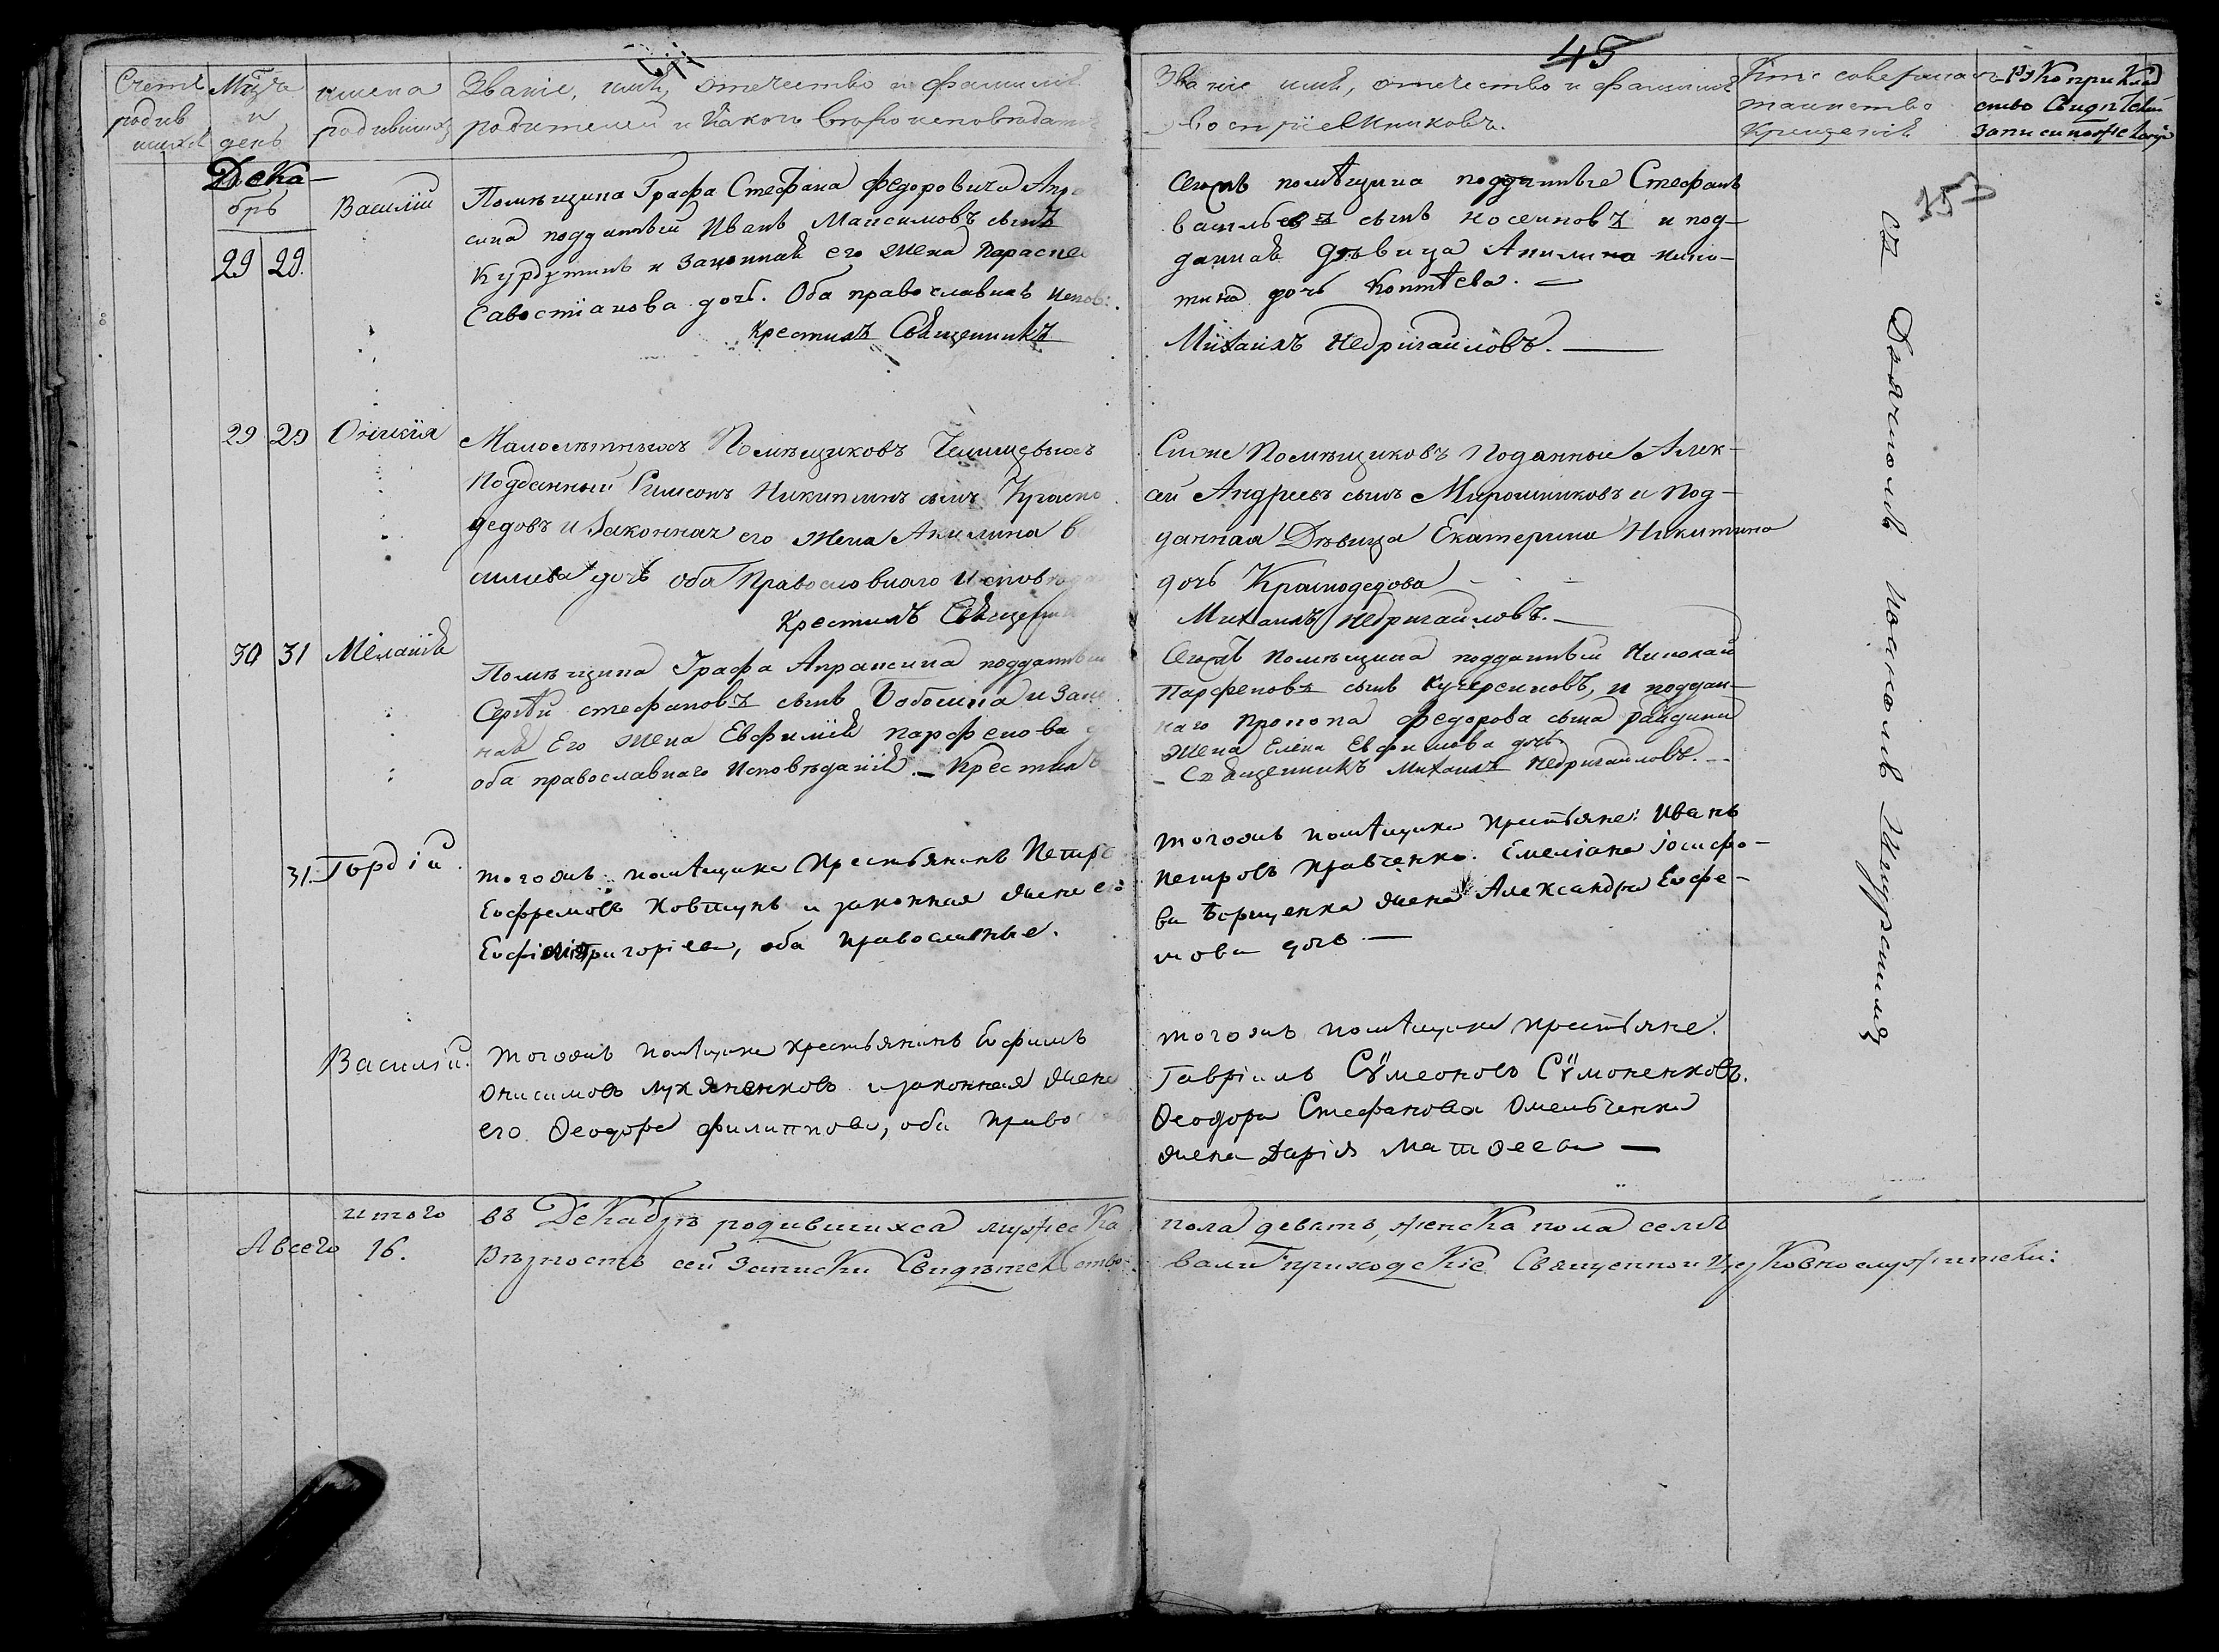 45
353
Счетъ родив шихся
Мцъ и день
имена родившихъ
Званіе, имя, отечество и фамилія
родителей и какого вероисповеда
Званіе имя, отечество и фамилія
воспріемниковъ.
Кто совершалъ
таинство
Крещенія
Рукоприклад
ство свидѣтелей
записи по желанію
Декабрь
29 29. Василій
Помѣщика Графа Стефана Федоровича Апра
сина подданный Иванъ Максимовъ сынъ
Курдупинъ и законная его жена Параске
Савостіанова дочь. Оба православнаъ испов:
крестилъ Священникъ
Сегожъ помѣщика подданные Стефанъ
васильевъ сынъ Носеиновъ и под-
данная дѣвица Акилина ники-
тина дочь Коптѣева.
Михаилъ Недригайловъ.
29 29 Онисія
Малолѣтныхъ Помѣщиковъ
Подданный Симеонъ Никитинъ сынъ
дедовъ и Законная его Жена Акилина в
силиева дочь оба Православнаго Исповѣда
Крестилъ Священ
Сихже Помѣщиковъ Поданной Алек-
сей Андреевъ сынъ Мирошниковъ и Под-
данная Дѣвица Екатерина Никитина
дочь Краснодедова
Михаилъ Недригайловъ.
30 31 Меланія
Помѣщика Графа Апраксина подданный
Сергѣй стефановъ сынъ Бобосина и Зако
ная Его жена Евфимія парфенова д
оба православнаго Исповѣданія. Крестилъ
Сегожъ Помѣщика подданный Николай
Парфеновъ сынъ Кучерсиновъ, и поддан-
наго Прокопа Федорова сына Райдина
Жена Елена Евфимова дочь
Священникъ Михаилъ Недригайловъ.
31. Гордій
тогожъ помѣщика Крестьянинъ Петръ
Евфремовъ Ковтунъ и законная жена его
Евфимія Григоріева, оба православные.
тогожъ помѣщика Крестьяне: Иванъ
Петровъ Кравченко. Емеліана Іосифо-
ва Борщенка жена Александра Евфе-
мова дочь
Василій.
тогожъ помѣщика крестьянинъ Ефимъ
Онисимовъ Лукяненковъ и законная жена
его Феодора филиппова, оба Право
тогожъ помѣщика крестьяне:
Гавріилъ Сѵмеоновъ Сѵмоненковъ.
Феодора Стефанова Омельченка
жена Дарія Матѳеева
съ Дьячкомъ Иваномъ
итого въ Декабрѣ родившихся мужеска
пола девять, женска пола семь
А всего 16. Вѣрность сей Записки Свидѣтельство-
вали приходскіе Священно и Церковнослужители: